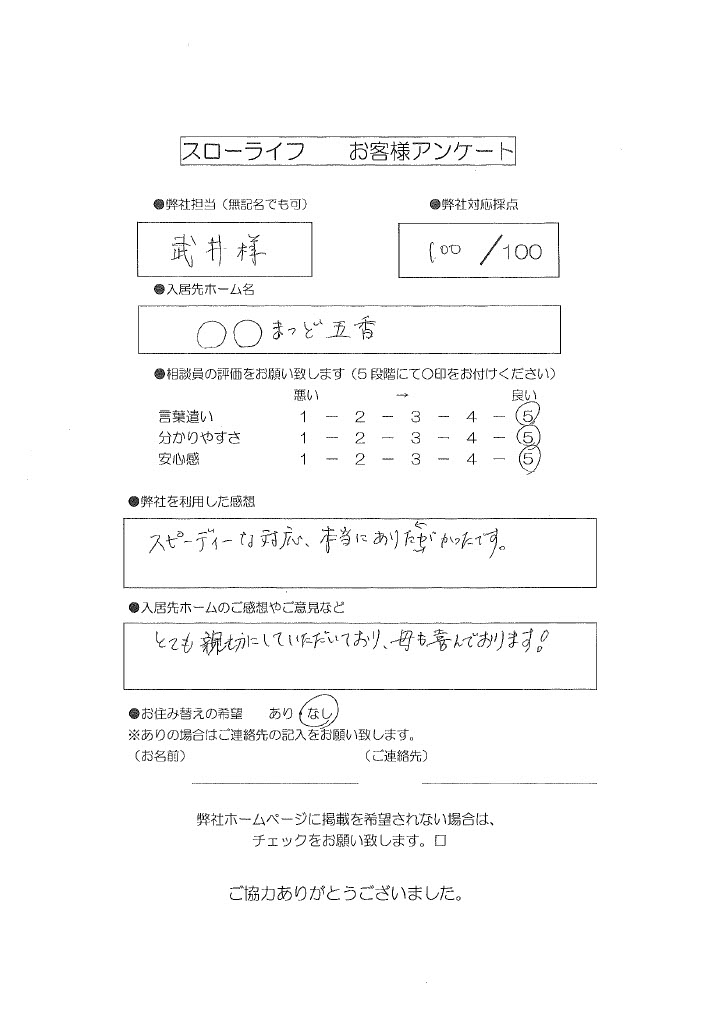 スローライフ　　お客様アンケート
●弊社担当（無記名でも可）　●弊社対応採点
武井様　100／100
●入居先ホーム名
○○まつど五香
●相談員の評価をお願い致します（５段階にて○印をお付けください）
悪い　→　良い
言葉遣い　1 － 2 － 3 － 4 － 5
分かりやすさ　1 － 2 － 3 － 4 － 5
安心感　1 － 2 － 3 － 4 － 5
●弊社を利用した感想
スピーディーな対応、本当にありたがかったです。
●入居先ホームのご感想やご意見など
とても親切にしていただいており、母も喜んでおります！
●お住み替えの希望　あり・なし
※ありの場合はご連絡先の記入をお願い致します。
（お名前）　（ご連絡先）
弊社ホームページに掲載を希望されない場合は、
チェックをお願い致します。□
ご協力ありがとうございました。